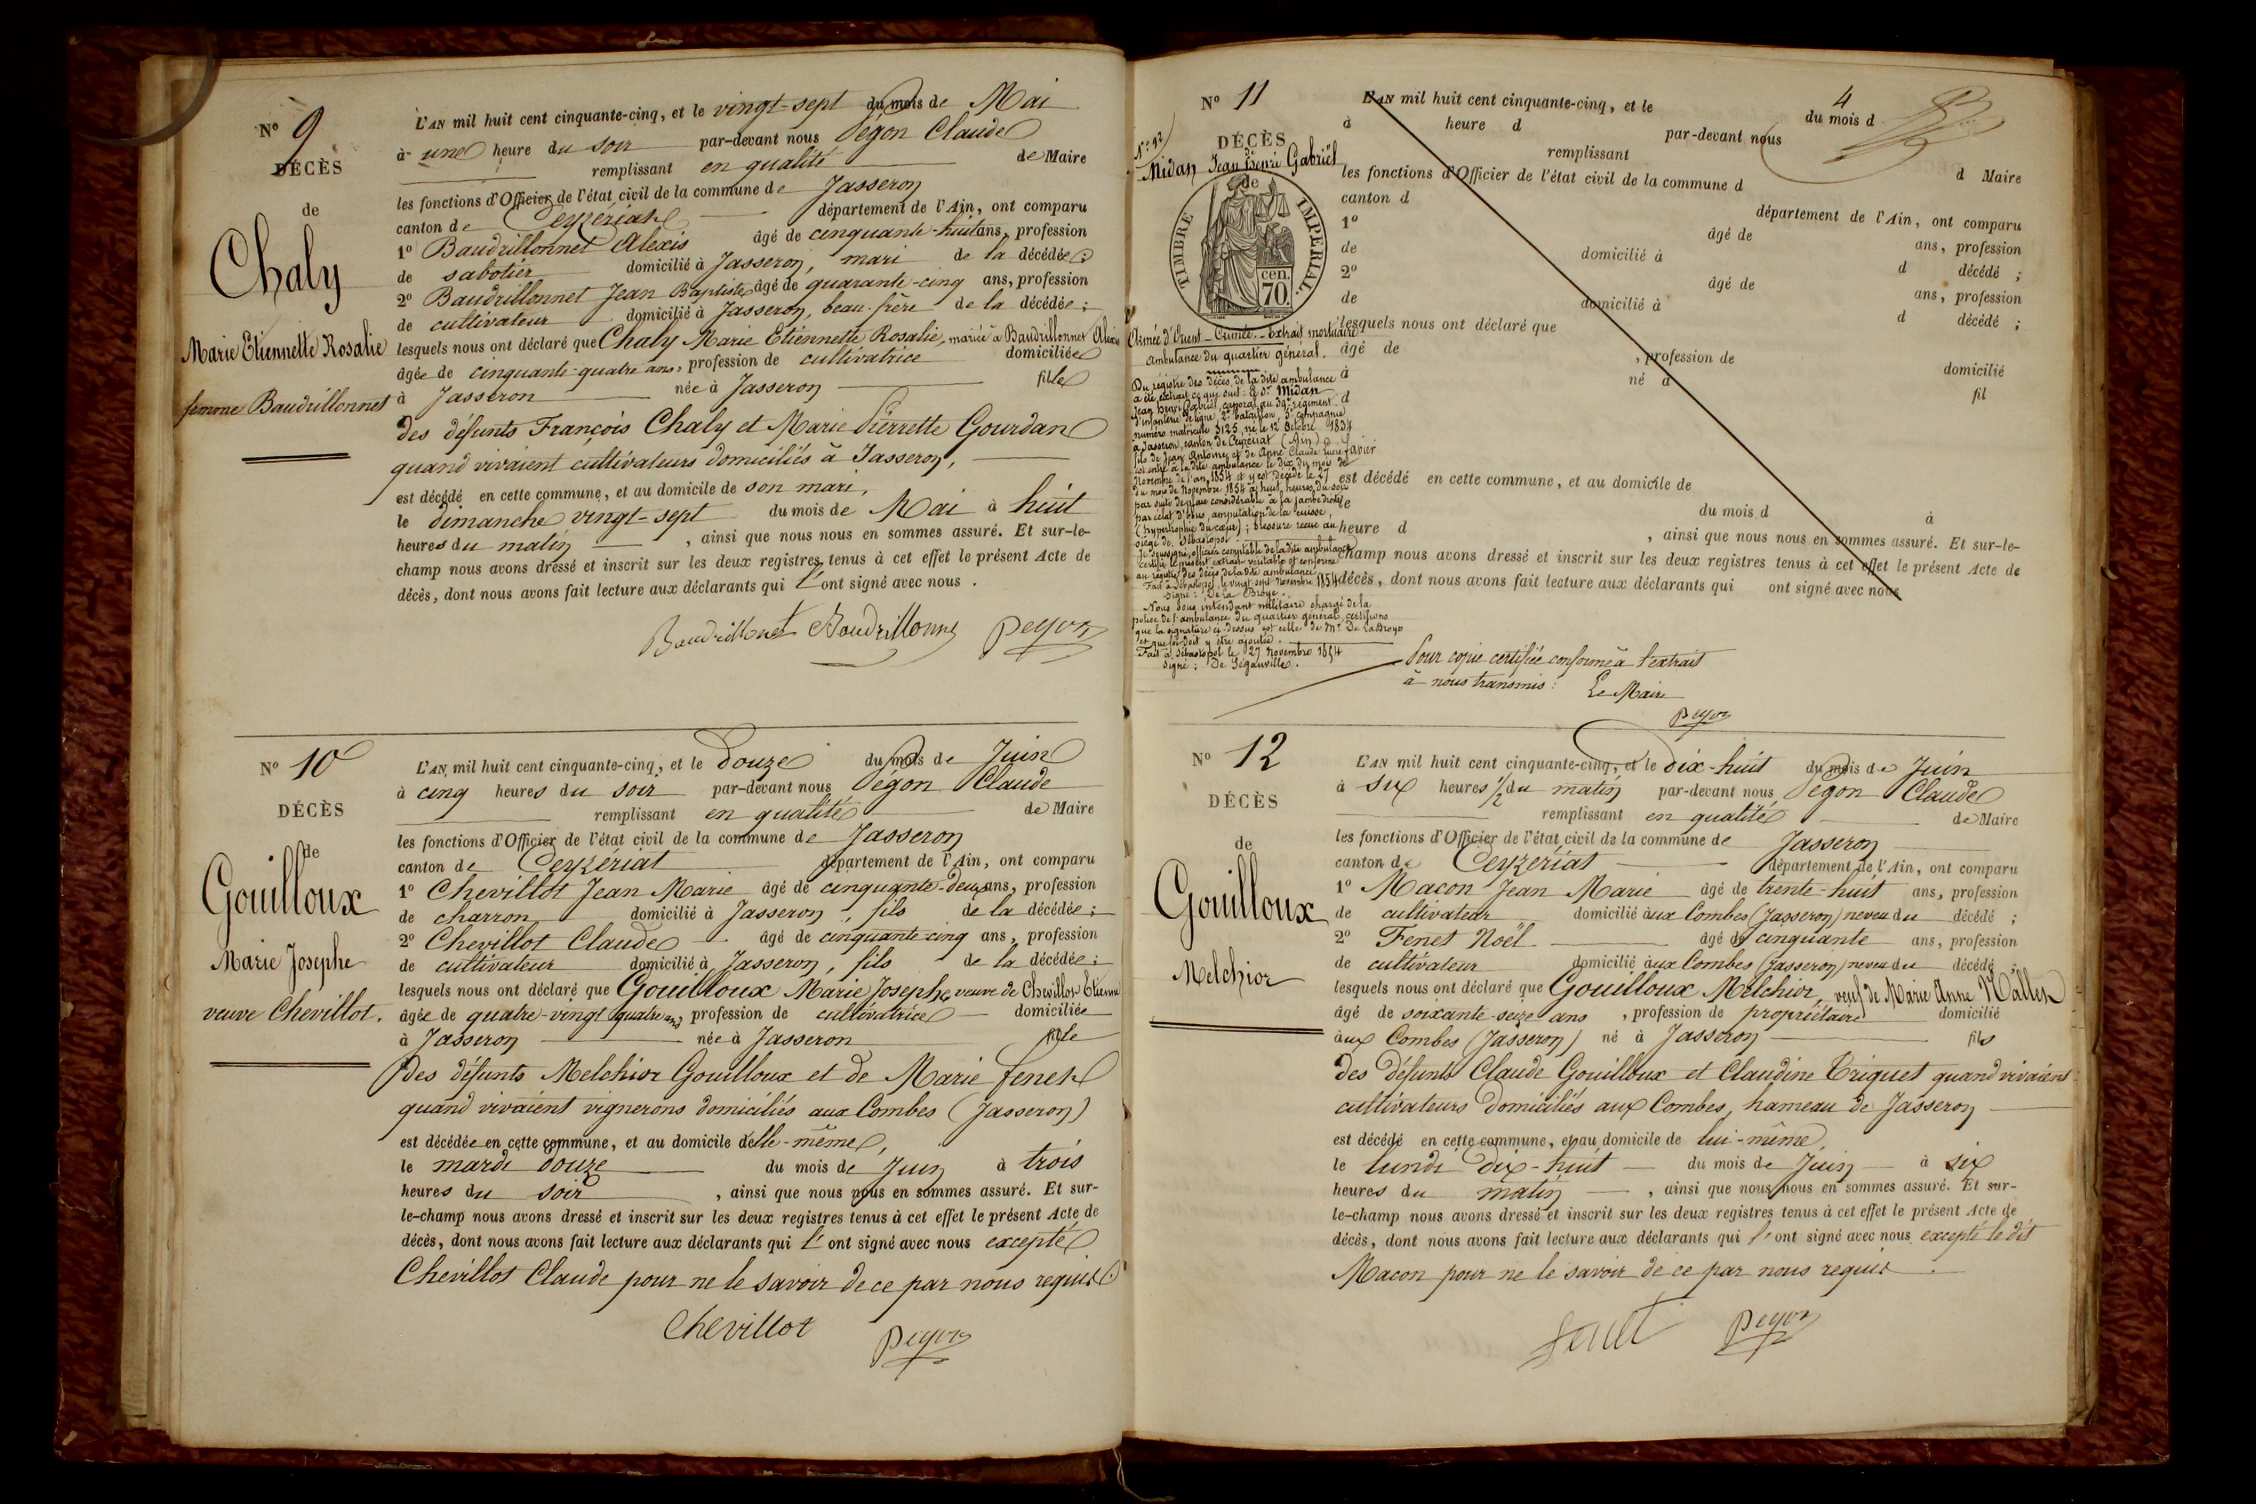 N° 9
DÉCÈS
de
Chaly
Marie Etiennette Rosalie
femme Baudrillonnet
L'AN mil huit cent cinquante-cinq, et le vingt-sept du mois de Mai
à une heure du soir par-devant nous Pégon Claude
remplissant en qualité de Maire
les fonctions d'Officier de l'état civil de la commune de Jasseron
canton de Ceyzériat département de l'Ain, ont comparu
1° Baudrillonnet Alexis âgé de cinquante-huit ans, profession
de sabotier domicilié à Jasseron, mari de la décédée ;
2° Baudrillonnet Jean Baptiste âgé de quarante-cinq ans, profession
de cultivateur domicilié à Jasseron, beau-frère de la décédée ;
lesquels nous ont déclaré que Chaly Marie Etiennette Rosalie, mariée à Baudrillonnet Alexis
âgée de cinquante-quatre ans, profession de cultivatrice domiciliée
à Jasseron née à Jasseron fille
des défunts François Chaly et Marie Pierrette Gourdan
quand vivaient cultivateurs domiciliés à Jasseron,
est décédé en cette commune, et au domicile de son mari,
le dimanche vingt-sept du mois de Mai à huit
heures du matin , ainsi que nous nous en sommes assuré. Et sur-le-
champ nous avons dressé et inscrit sur les deux registres tenus à cet effet le présent Acte de
décès, dont nous avons fait lecture aux déclarants qui l' ont signé avec nous .
Baudrillonet Baudrillonne Pegon
N° 10
DÉCÈS
de
Gouilloux
Marie Josephe
veuve Chevillot.
L'AN mil huit cent cinquante-cinq, et le douze du mois de Juin
à cinq heures du soir par-devant nous Pégon Claude
remplissant en qualité de Maire
les fonctions d'Officier de l'état civil de la commune de Jasseron
canton de Ceyzériat département de l'Ain, ont comparu
1° Chevillot Jean Marie âgé de cinquante-deux ans, profession
de charron domicilié à Jasseron, fils de la décédée ;
2° Chevillot Claude âgé de cinquante-cinq ans, profession
de cultivateur domicilié à Jasseron, fils de la décédée ;
lesquels nous ont déclaré que Gouilloux Marie Josephe, veuve de Chevillot Etienne
âgée de quatre-vingt quatre ans, profession de cultivatrice domiciliée
à Jasseron née à Jasseron fille
des défunts Melchior Gouilloux et de Marie fenet
quand vivaient vignerons domiciliés aux Combes (Jasseron)
est décédée en cette commune, et au domicile d'elle-même,
le mardi douze du mois de Juin à trois
heures du soir , ainsi que nous nous en sommes assuré. Et sur-
le-champ nous avons dressé et inscrit sur les deux registres tenus à cet effet le présent Acte de
décès, dont nous avons fait lecture aux déclarants qui l' ont signé avec nous excepté
Chevillot Claude pour ne le savoir de ce par nous requis.
Chevillot Pegon
N° 11
DÉCÈS
de
Midan Jean Henri Gabriel
TIMBRE IMPERIAL.
cen.
70.
Armée d'Orient _ Crimée _ Extrait mortuaire
Ambulance du quartier général.
Du registre des décès de la dite ambulance
a été extrait ce qui suit : le Sr Midan
Jean Henri Gabriel, caporal au 39e régiment
d'infanterie de ligne, 2e bataillon, 3e compagnie
numéro matricule 3125, né le 12 Octobre 1834
à Jasseron, canton de Ceyzériat (Ain)
fils de Jean Antoine et de Anne Claude Lucie Favier
est entré à la dite ambulance le dix du mois de
Novembre de l'an 1854 et y est décédé le 27
du mois de Novembre 1854 à huit heures du soir
par suite de plaie considérable à la jambe droite
par éclat d'obus, amputation de la cuisse,
(hypertrophie du cœur) ; blessure reçue au
siège de Sébastopol
Je soussigné, officier comptable de la dite ambulance
certifie le présent extrait véritable et conforme
au registre des décès de la dite ambulance
Fait à Sébastopol, le vingt-sept Novembre 1854
Signé : De la Broye.
Nous sous intendant militaire chargé de la
police de l'ambulance du quartier général, certifions
que la signature ci-dessus est celle de Mr De la Broye
et que foi doit y être ajoutée.
Fait à Sébastopol le 27 Novembre 1854
Signé : De Ségauville.
4
L'AN mil huit cent cinquante-cinq, et le du mois d
à heure d par-devant nous
remplissant d Maire
les fonctions d'Officier de l'état civil de la commune d
canton d département de l'Ain, ont comparu
1° âgé de ans, profession
de domicilié à d décédé ;
2° âgé de ans, profession
de domicilié à d décédé ;
lesquels nous ont déclaré que
âgé de , profession de domicilié
à né à fil
d
est décédé en cette commune, et au domicile de
le du mois d à
heure d , ainsi que nous nous en sommes assuré. Et sur-le-
champ nous avons dressé et inscrit sur les deux registres tenus à cet effet le présent Acte de
décès, dont nous avons fait lecture aux déclarants qui ont signé avec nous
Pour copie certifiée conforme à l'extrait
à nous transmis :
Le Maire
Pegon
N° 12
DÉCÈS
de
Gouilloux
Melchior
L'AN mil huit cent cinquante-cinq, et le dix-huit du mois de Juin
à six heures 1/2 du matin par-devant nous Pégon Claude
remplissant en qualité de Maire
les fonctions d'Officier de l'état civil de la commune de Jasseron
canton de Ceyzériat département de l'Ain, ont comparu
1° Macon Jean Marie âgé de trente-huit ans, profession
de cultivateur domicilié aux Combes (Jasseron) neveu du décédé ;
2° Fenet Noël âgé de cinquante ans, profession
de cultivateur domicilié aux Combes (Jasseron) neveu du décédé ;
lesquels nous ont déclaré que Gouilloux Melchior, veuf de Marie Anne Nallet
âgé de soixante-seize ans , profession de propriétaire domicilié
aux Combes (Jasseron) né à Jasseron fils
des défunts Claude Gouilloux et Claudine Triquet quand vivaient
cultivateurs domiciliés aux Combes, hameau de Jasseron
est décédé en cette commune, et au domicile de lui-même,
le lundi dix-huit du mois de Juin à six
heures du matin , ainsi que nous nous en sommes assuré. Et sur-
le-champ nous avons dressé et inscrit sur les deux registres tenus à cet effet le présent Acte de
décès, dont nous avons fait lecture aux déclarants qui l' ont signé avec nous excepté le dit
Macon pour ne le savoir de ce par nous requis.
Fenet Pegon